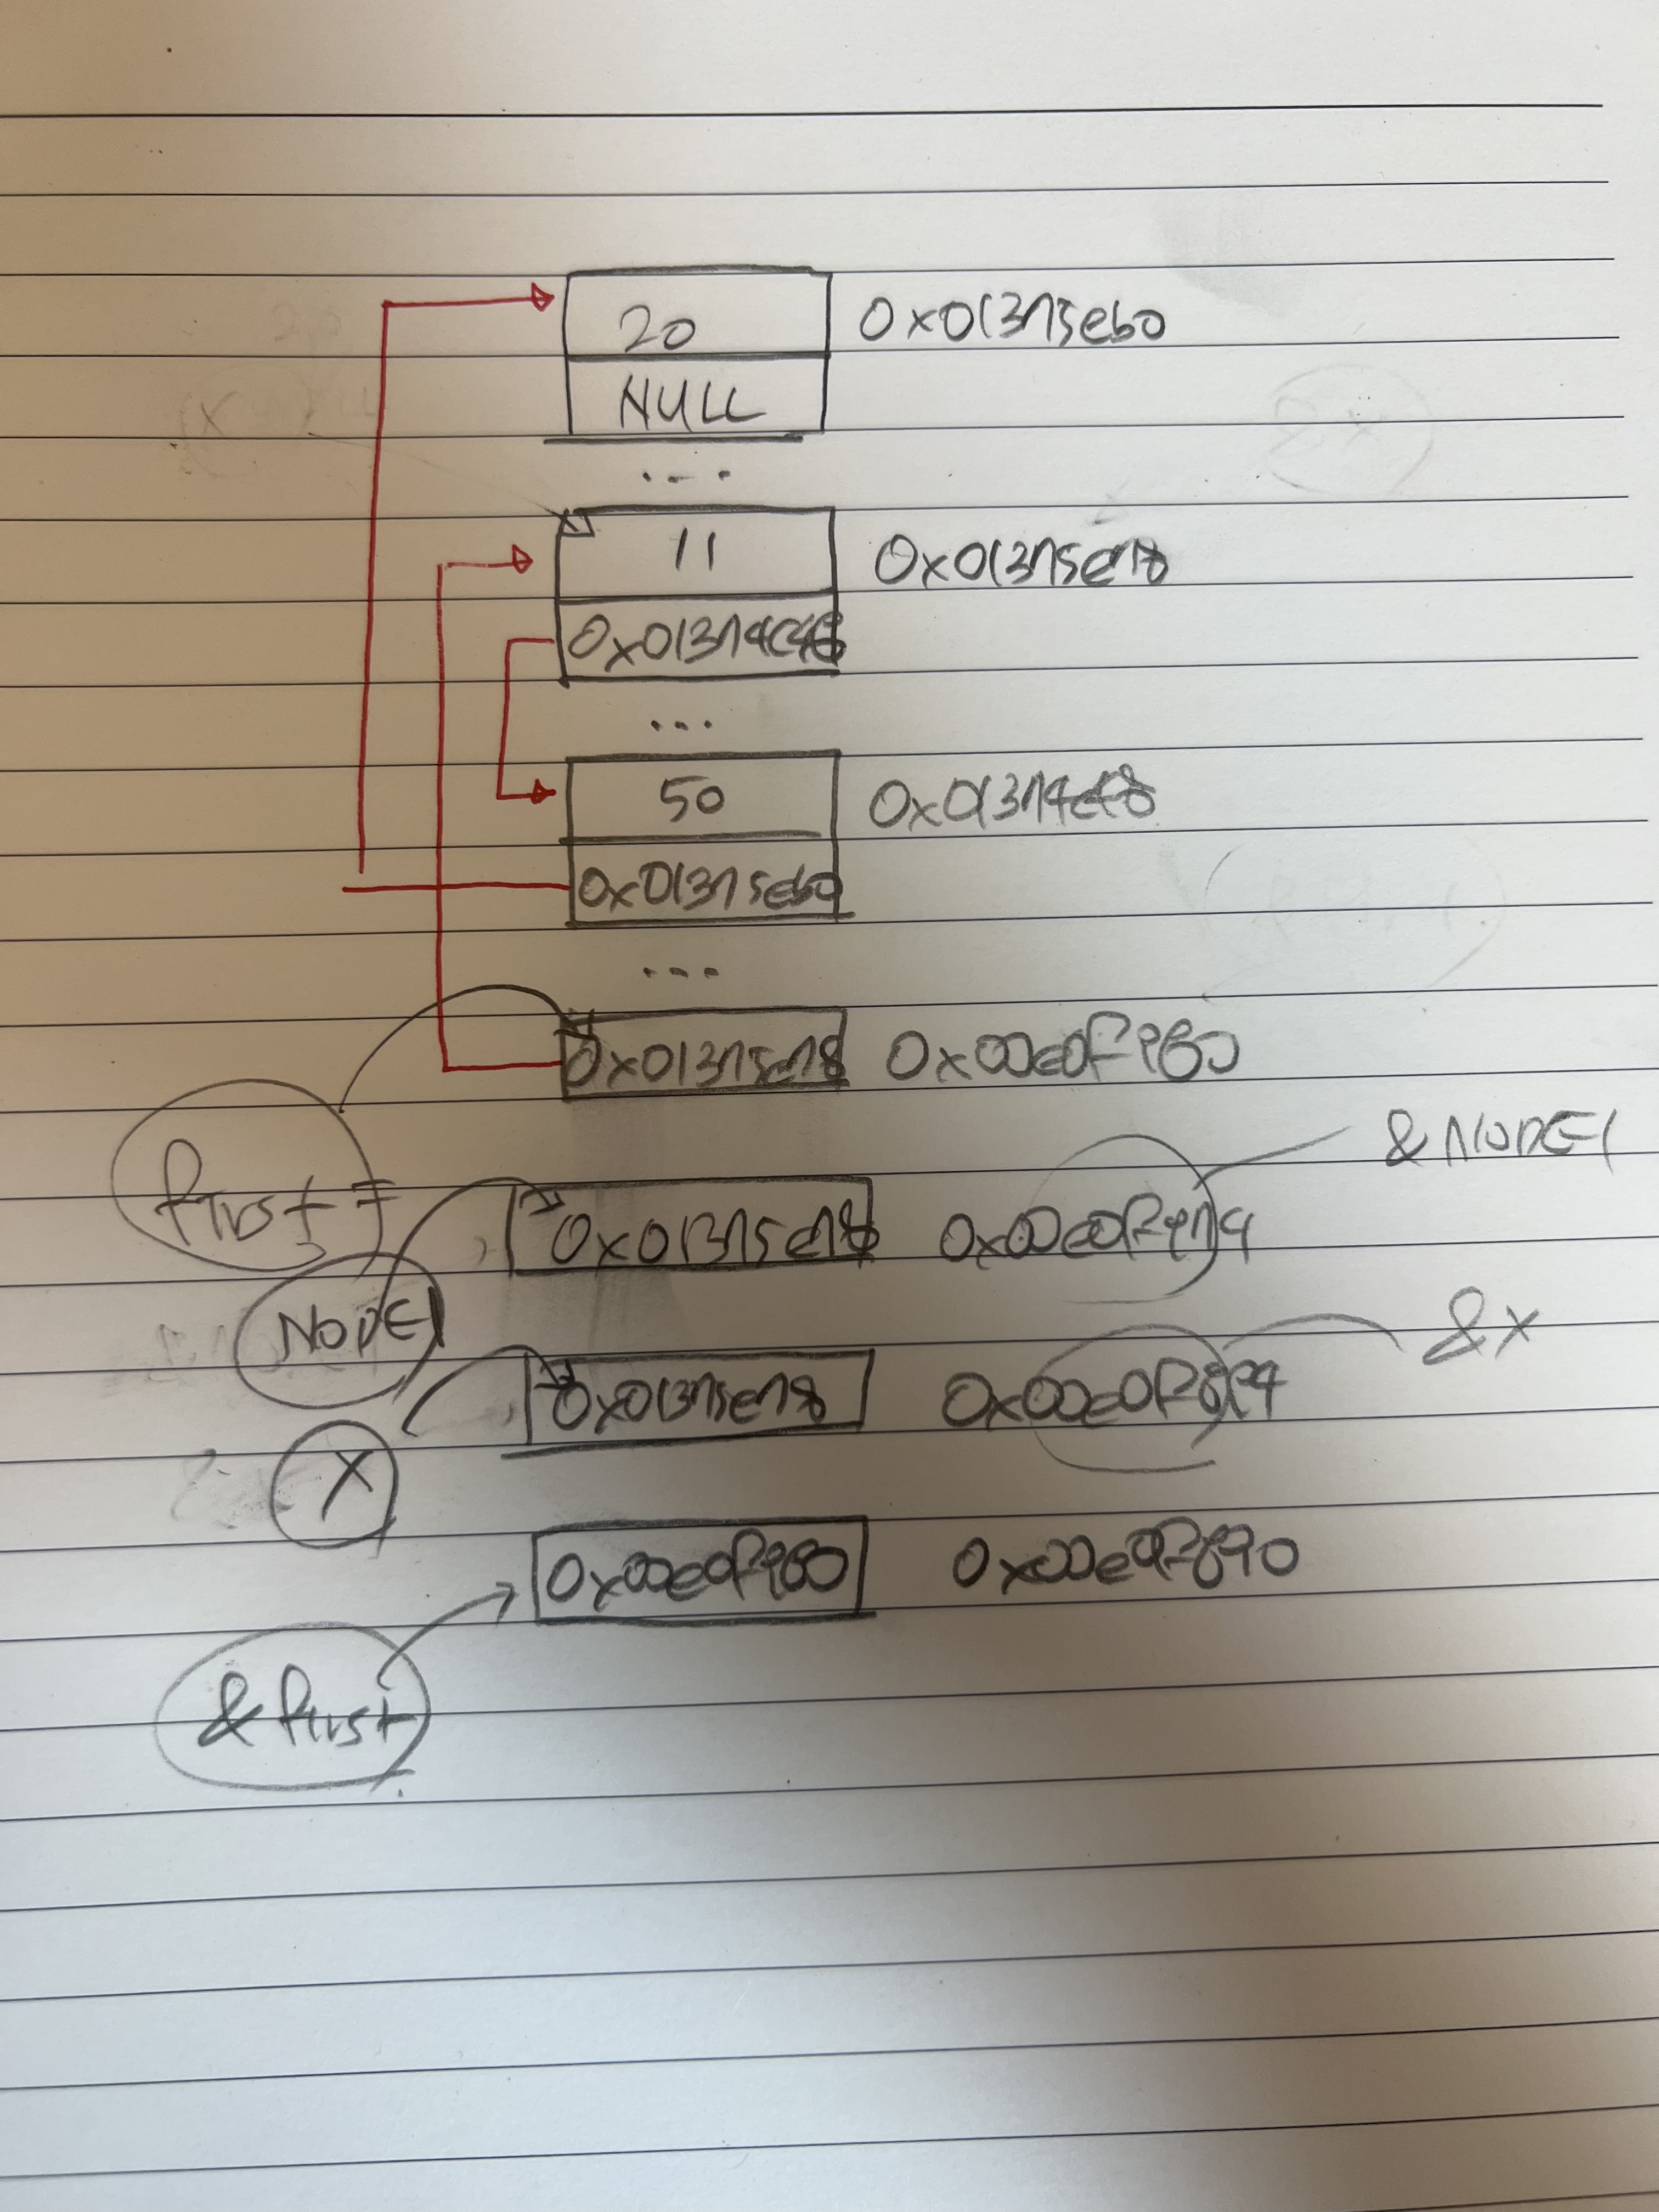 20 0x01375eb0
NULL
...
11 0x01375e78
0x01374c48
...
50 0x01374c48
0x01375eb0
...
0x01375e78 0x00e0f980
first =
& NODE1
0x01375e78 0x00e0f974
NODE1
& X
0x01375e78 0x00e0f894
X
0x00e0f980 0x00e0f890
& first